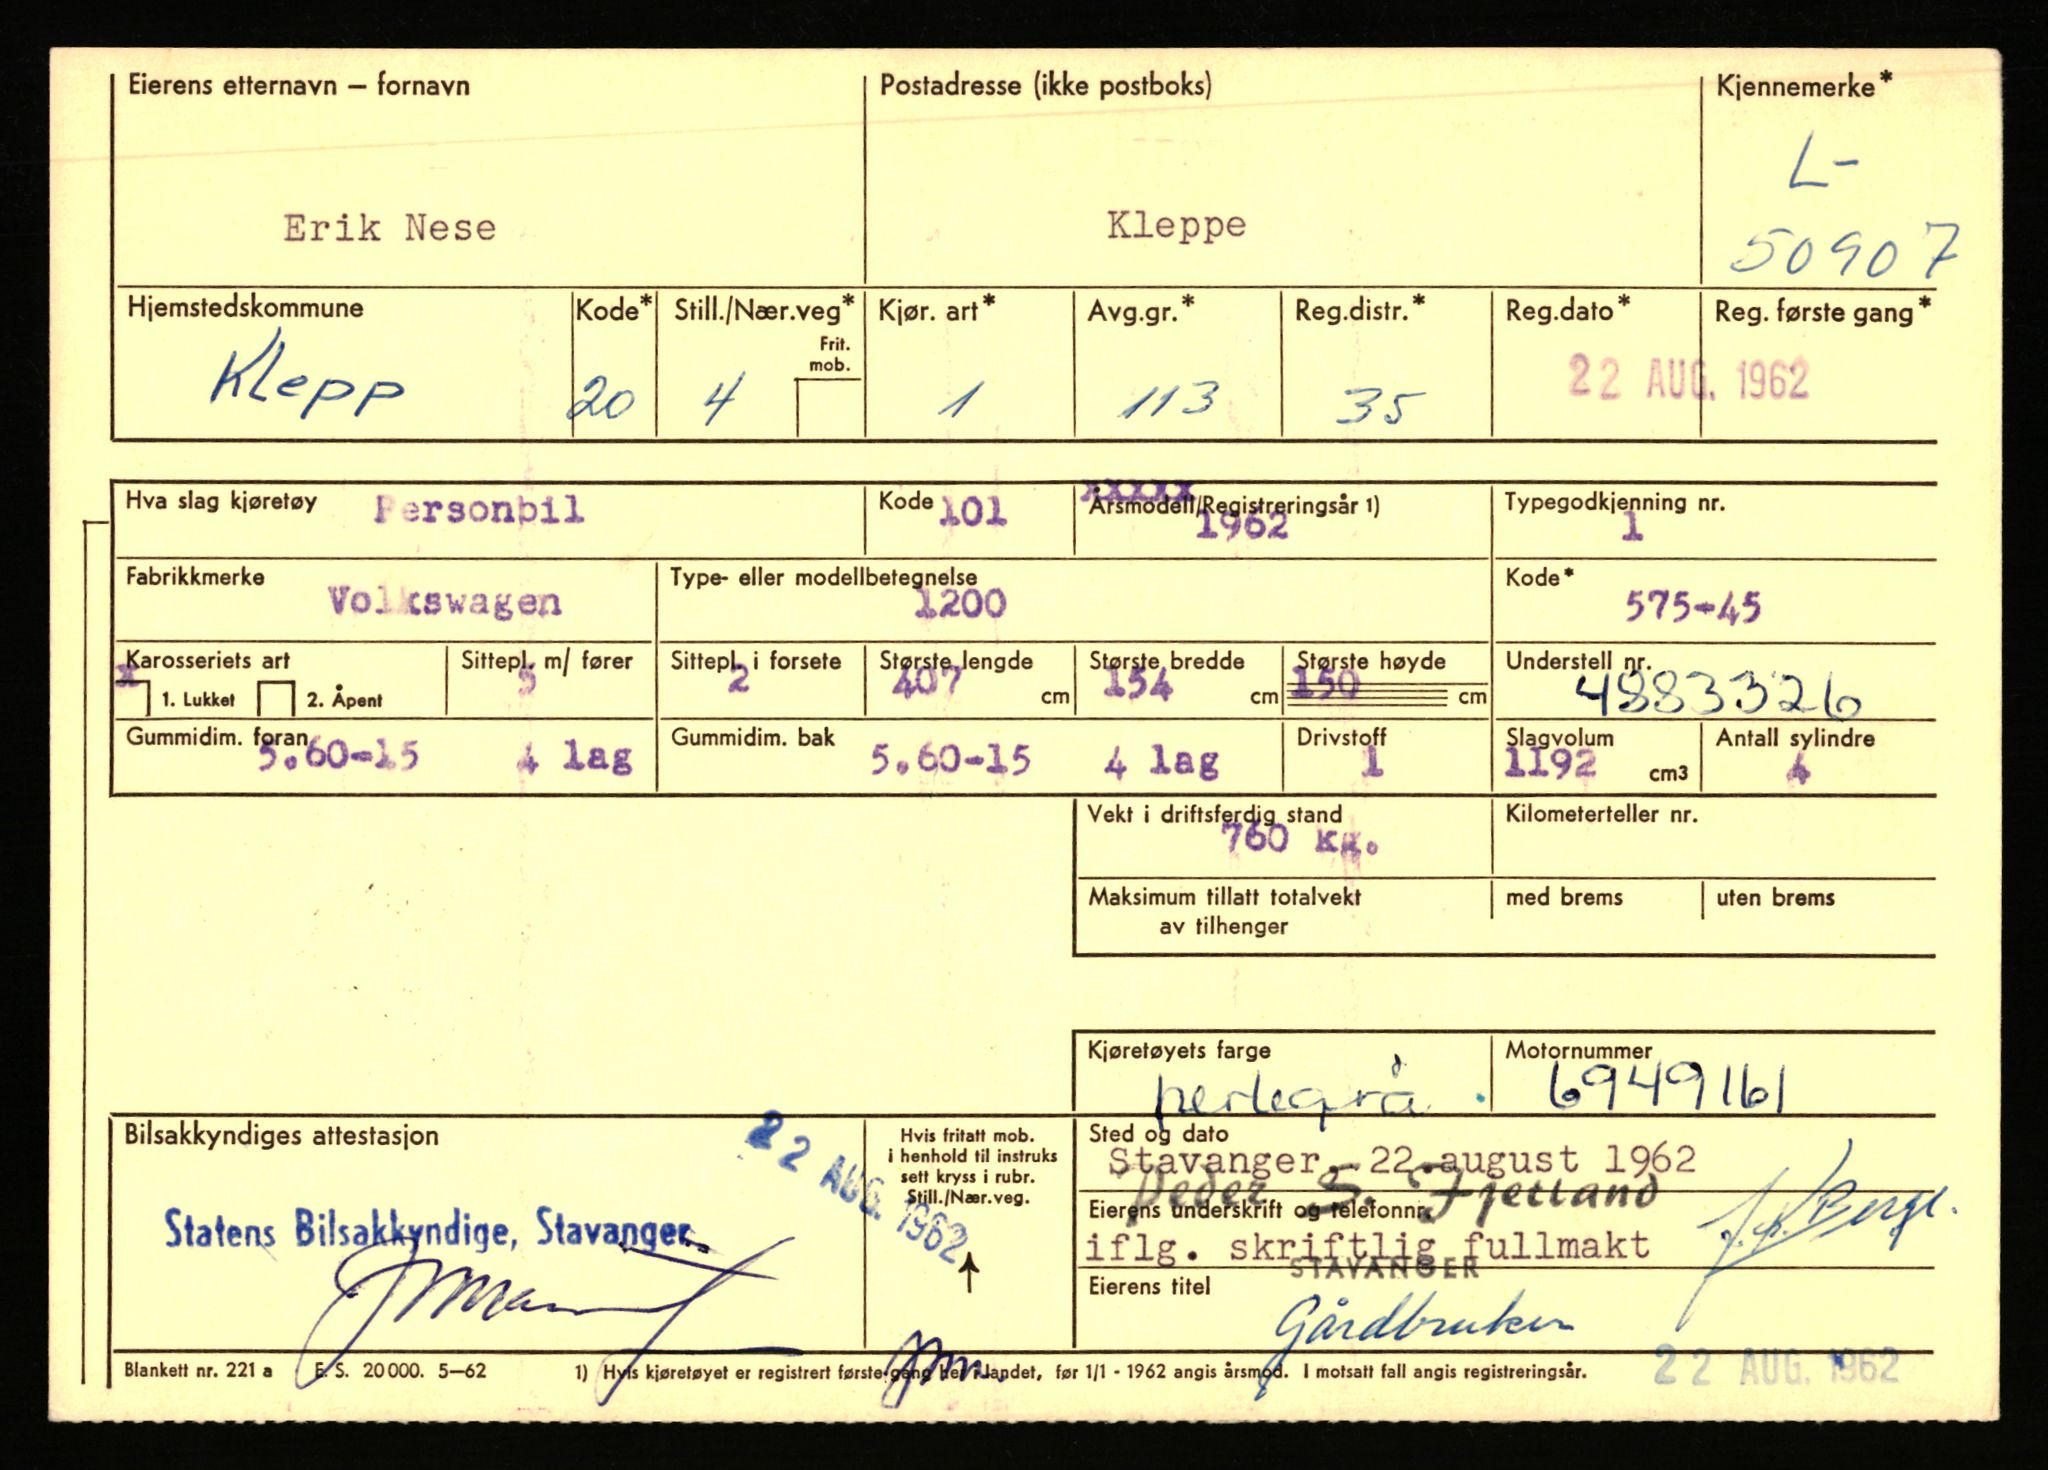 Eierens etternavn – fornavn
Postadresse (ikke postboks)
Kjennemerke*
Erik Nese
Kleppe
L-
50907
Hjemstedskommune
Kode*
Still./Nær.veg*
Frit.
mob.
Kjør. art*
Avg.gr.*
Reg.distr.*
Reg.dato*
Reg. første gang*
Klepp
20
4
1
113
35
22 AUG. 1962
Hva slag kjøretøy
Personbil
Kode
101
xxxxx
Årsmodell/Registreringsår 1)
1962
Typegodkjenning nr.
1
Fabrikkmerke
Volkswagen
Type- eller modellbetegnelse
1200
Kode*
575-45
Karosseriets art
x
1. Lukket
2. Åpent
Sittepl. m/ fører
5
Sittepl. i forsete
2
Største lengde
407 cm
Største bredde
154 cm
Største høyde
150 cm
Understell nr.
4883326
Gummidim. foran
5.60-15 4 lag
Gummidim. bak
5.60-15 4 lag
Drivstoff
1
Slagvolum
1192 cm3
Antall sylindre
4
Vekt i driftsferdig stand
760 kg.
Kilometerteller nr.
Maksimum tillatt totalvekt
av tilhenger
med brems
uten brems
Kjøretøyets farge
perlegrå
Motornummer
6949161
Bilsakkyndiges attestasjon
22 AUG. 1962
Statens Bilsakkyndige, Stavanger.
Hvis fritatt mob.
i henhold til instruks
sett kryss i rubr.
Still./Nær.veg.
Sted og dato
Stavanger, 22.august 1962
Peder S. Fjetland
Eierens underskrift og telefonnr.
iflg. skriftlig fullmakt
STAVANGER
Eierens titel
Gårdbruker
22 AUG. 1962
Blankett nr. 221 a E. S. 20000. 5–62
1) Hvis kjøretøyet er registrert første gang her i landet, før 1/1 - 1962 angis årsmod. I motsatt fall angis registreringsår.